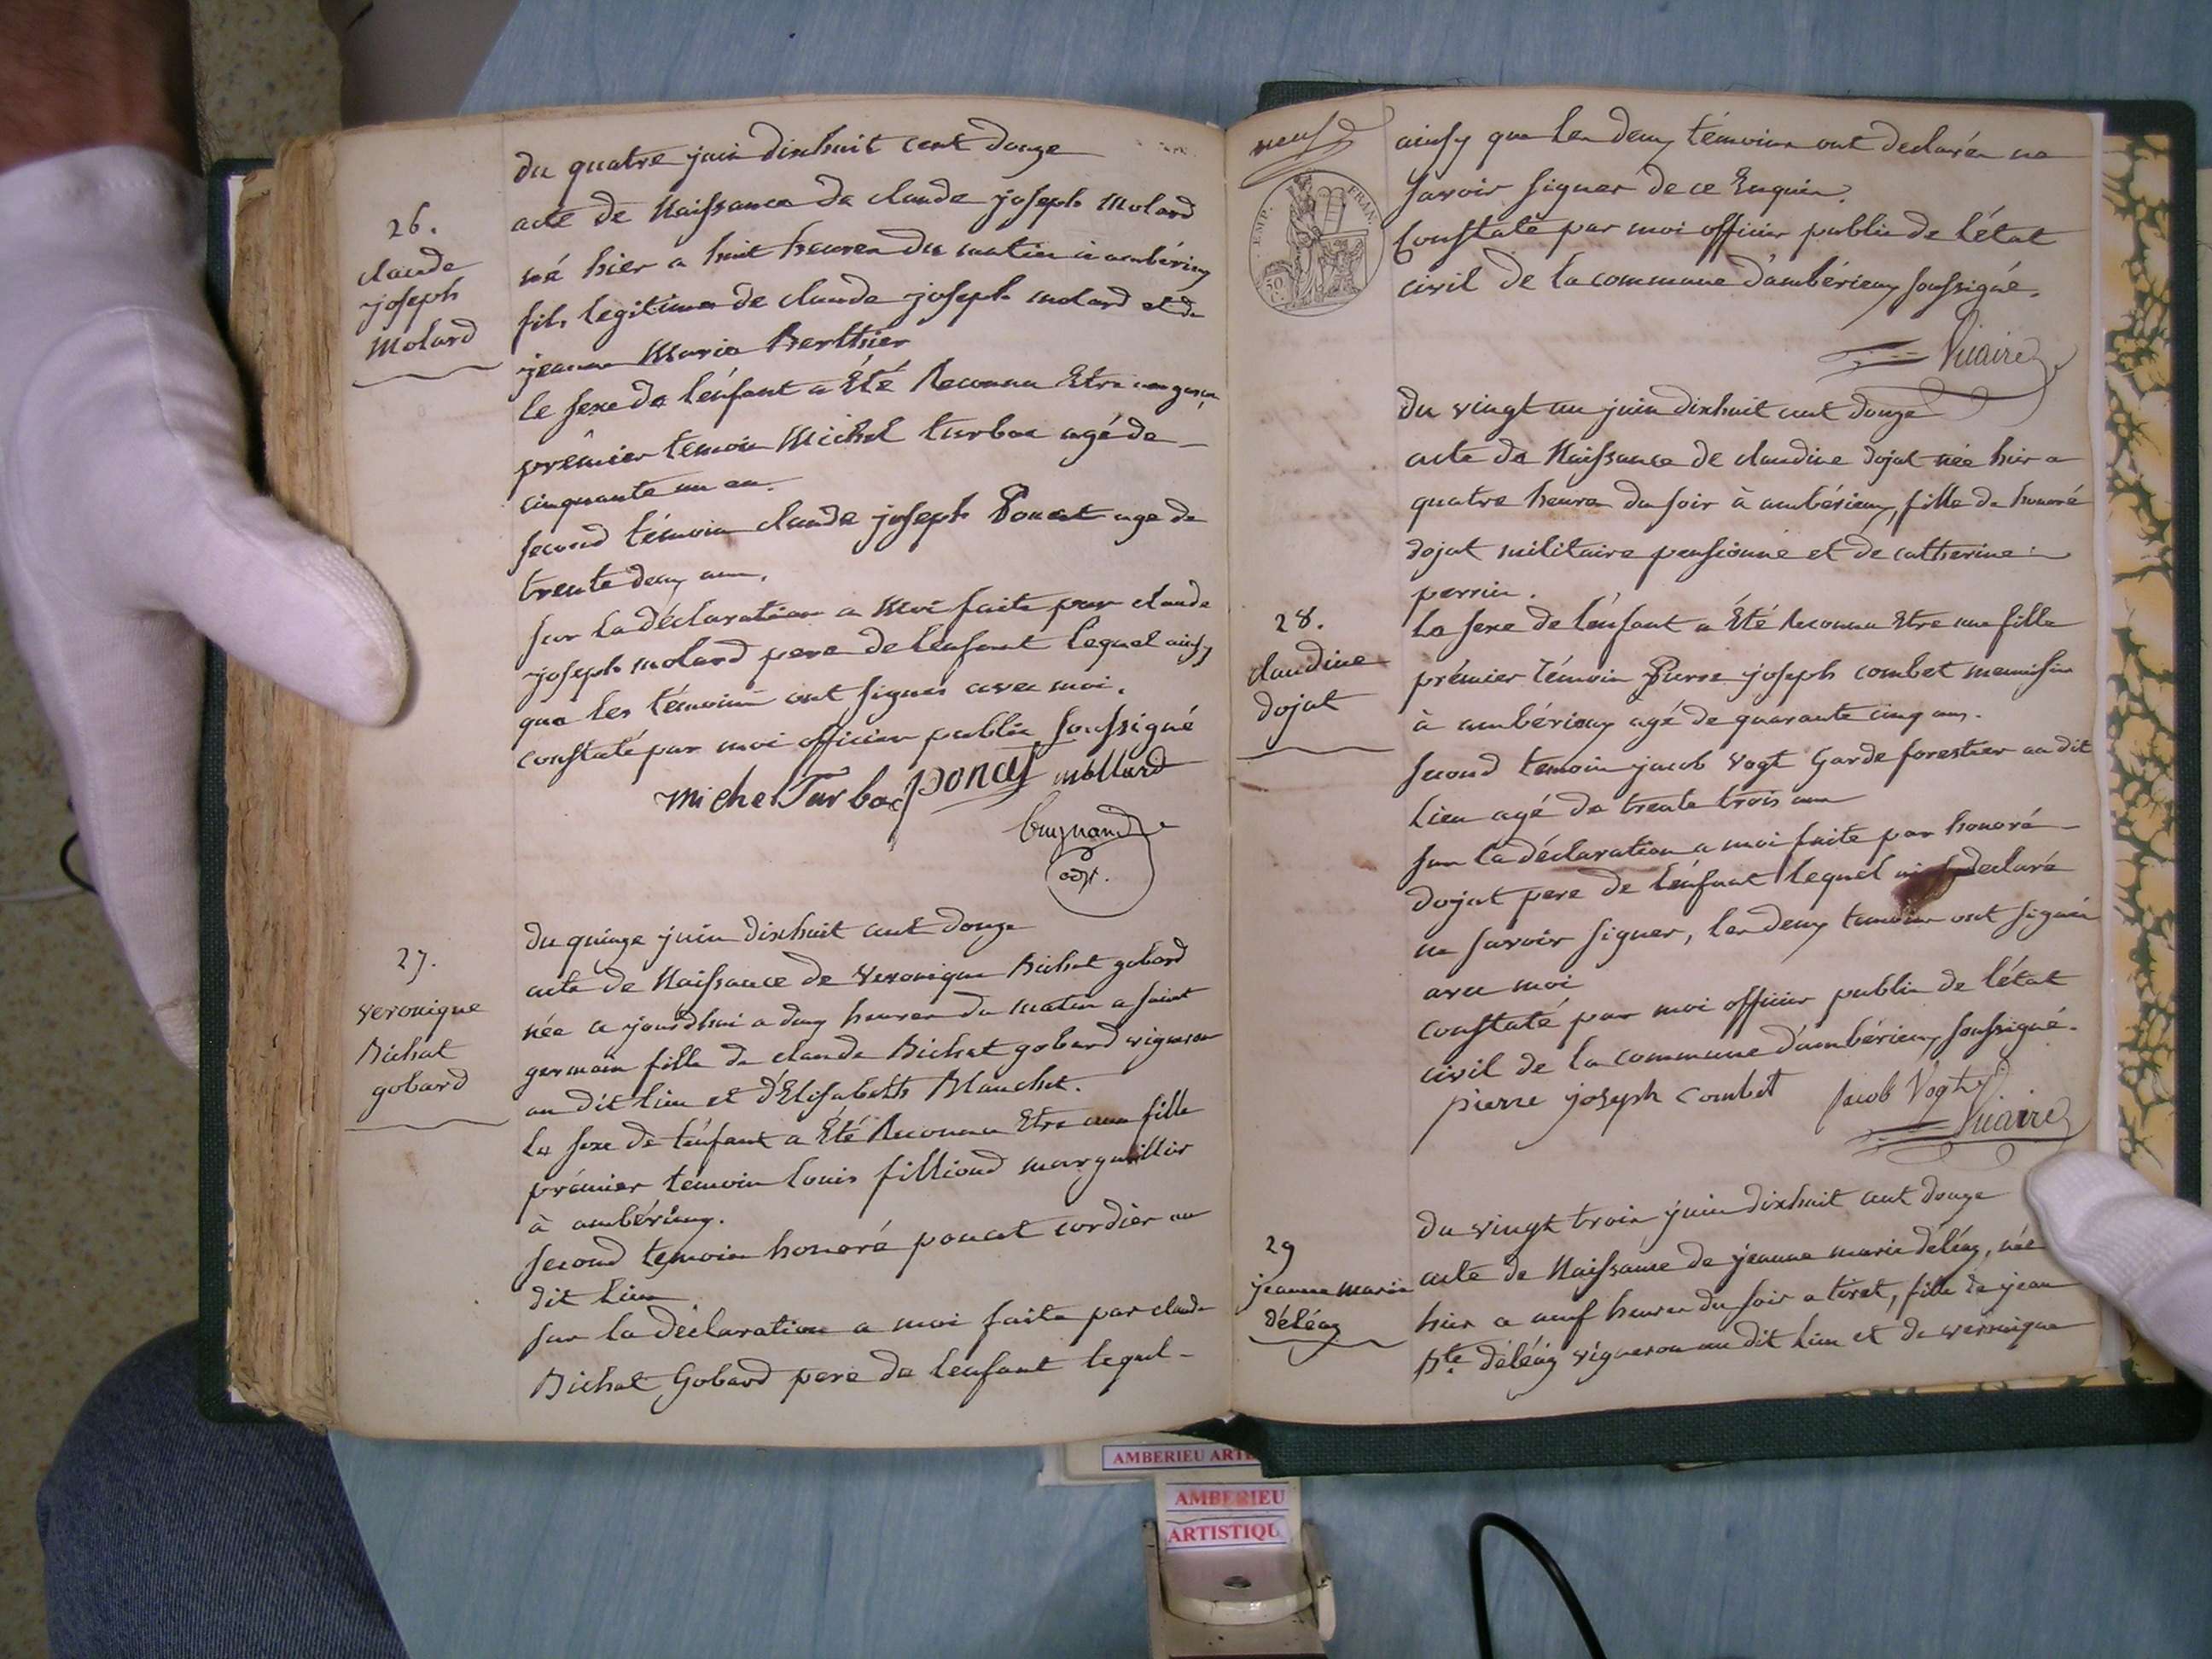 du quatre juin dixhuit cent douze
26.
claude
joseph
Molard
acte de Naissance de claude joseph Molard
né hier a huit heures du matin a ambérieuy
fils legitime de claude joseph molard et de
jeanne Marie Berthier
le sexe de lénfant a Été Reconnu Etre un garcon
prémier temoin Michel turbac agé de
cinquante un an.
second témoin claude joseph Poncet age de
trente deuy ans.
sur la déclaration a Moi faite par claude
joseph molard pere de lenfant lequel ainsy
que les témoins ont signés avec moi.
constaté par moi officier public soussigné
michel Turbac poncet mollard
adjt.
27.
veronique
Bichat
gobard
du quinze juin dixhuit cent douze
acte de Naissance de veronique Bichat gobard
née a jourdhui a deuy heures du matin a saint
germain fille de claude Bichat gobard vigneron
au dit lieu et d'Elisabeth Blanchet.
Le sexe de lénfant a Été Reconnu Etre une fille
prémier temoin louis filliond marguillier
à ambérieuy.
second temoin honoré poncet cordier au
dit lieu
sur la déclaration a moi faite par claude
Bichat Gobard pere de lenfant lequel
neuf
EMP. FRAN.
50
C.
ainsy que les deuy témoins ont declarés ne
savoir signer de ce Enquis.
Constaté par moi officier public de l'état
civil de la commune d'ambérieuy soussigné.
Vicaire
du vingt un juin dixhuit cent douze
acte de Naissance de claudine dojat née hier a
quatre heures du soir à ambérieuy, fille de honoré
dojat militaire pensionné et de catherine
perrin.
28.
claudine
dojat
Le sexe de lénfant a Été Reconnu Etre une fille
prémier témoin Pierre joseph combet menuisier
à ambérieuy agé de quarante cinq ans.
second temoin jacob Vogt Garde forestier au dit
Lieu agé de trente trois ans
sur la déclaration a moi faite par honoré
dojat pere de lénfant lequel declaré
ne savoir signer, les deuy temoins ont signés
avec moi
constaté par moi officier public de l'état
civil de la commune d'ambérieuy soussigné.
pierre joseph combet Jacob Vogt
Vicaire
du vingt trois juin dixhuit cent douze
29
jeanne marie
déléaz
acte de Naissance de jeanne marie déléaz, née
hier a neuf heures du soir a tiret, fille de jean
Bte déléaz vigneron au dit lieu et de veronique
AMBERIEU ARTI
AMBERIEU
ARTISTIQU